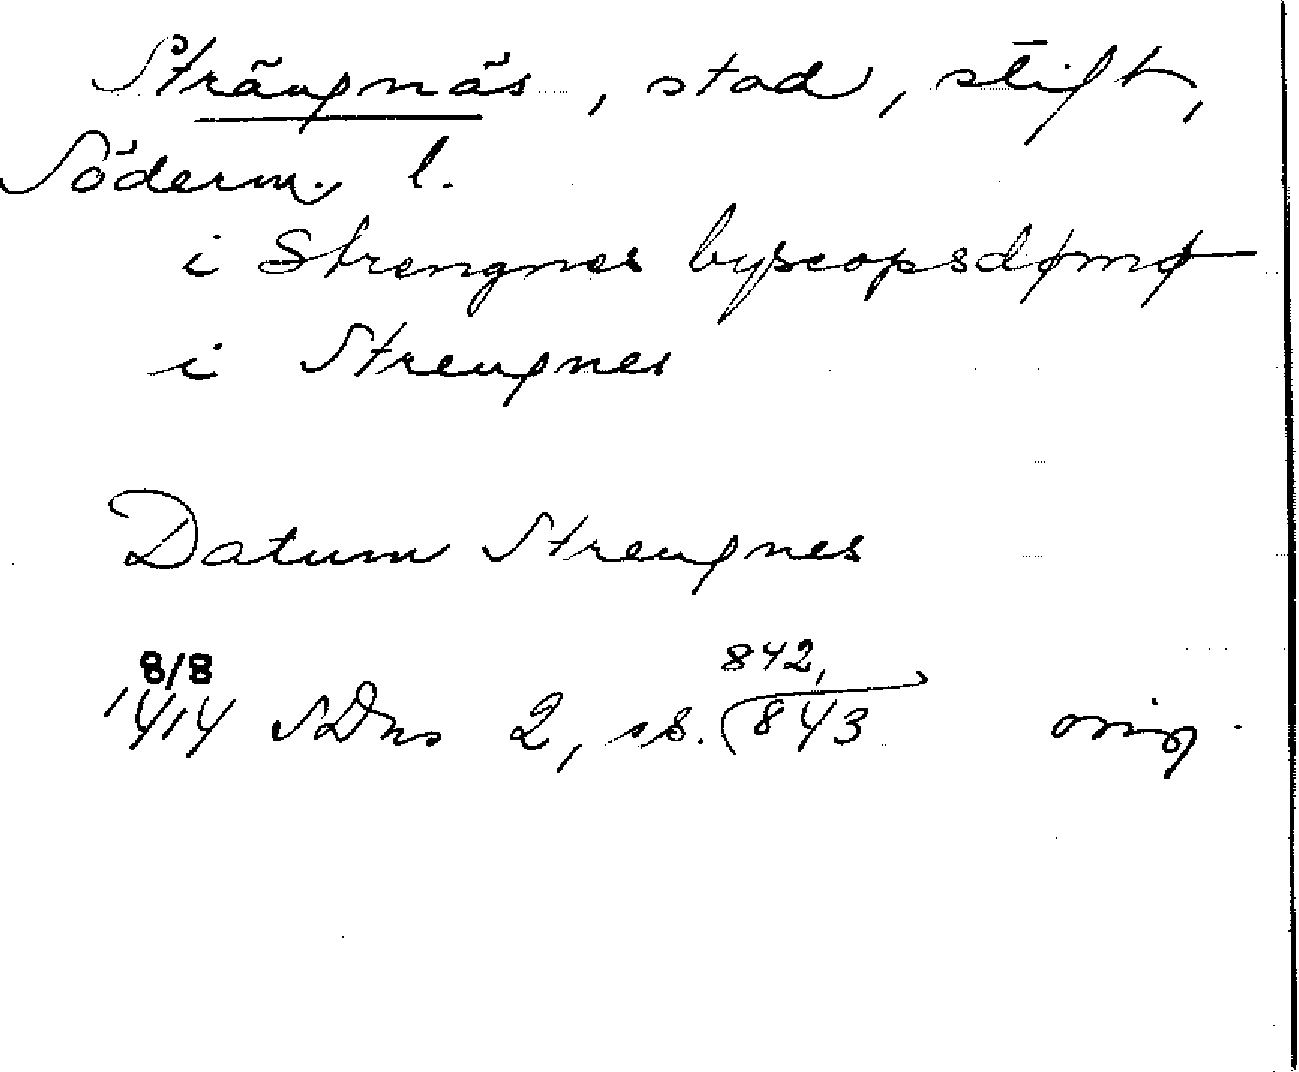 Strängnäs, stad, stift,
Söderm. l.
i Strengnes byscopsdømø
i Strengnes
Datum Strengnes
8/8 842,
1414 SDns 2, ss. 843 orig.